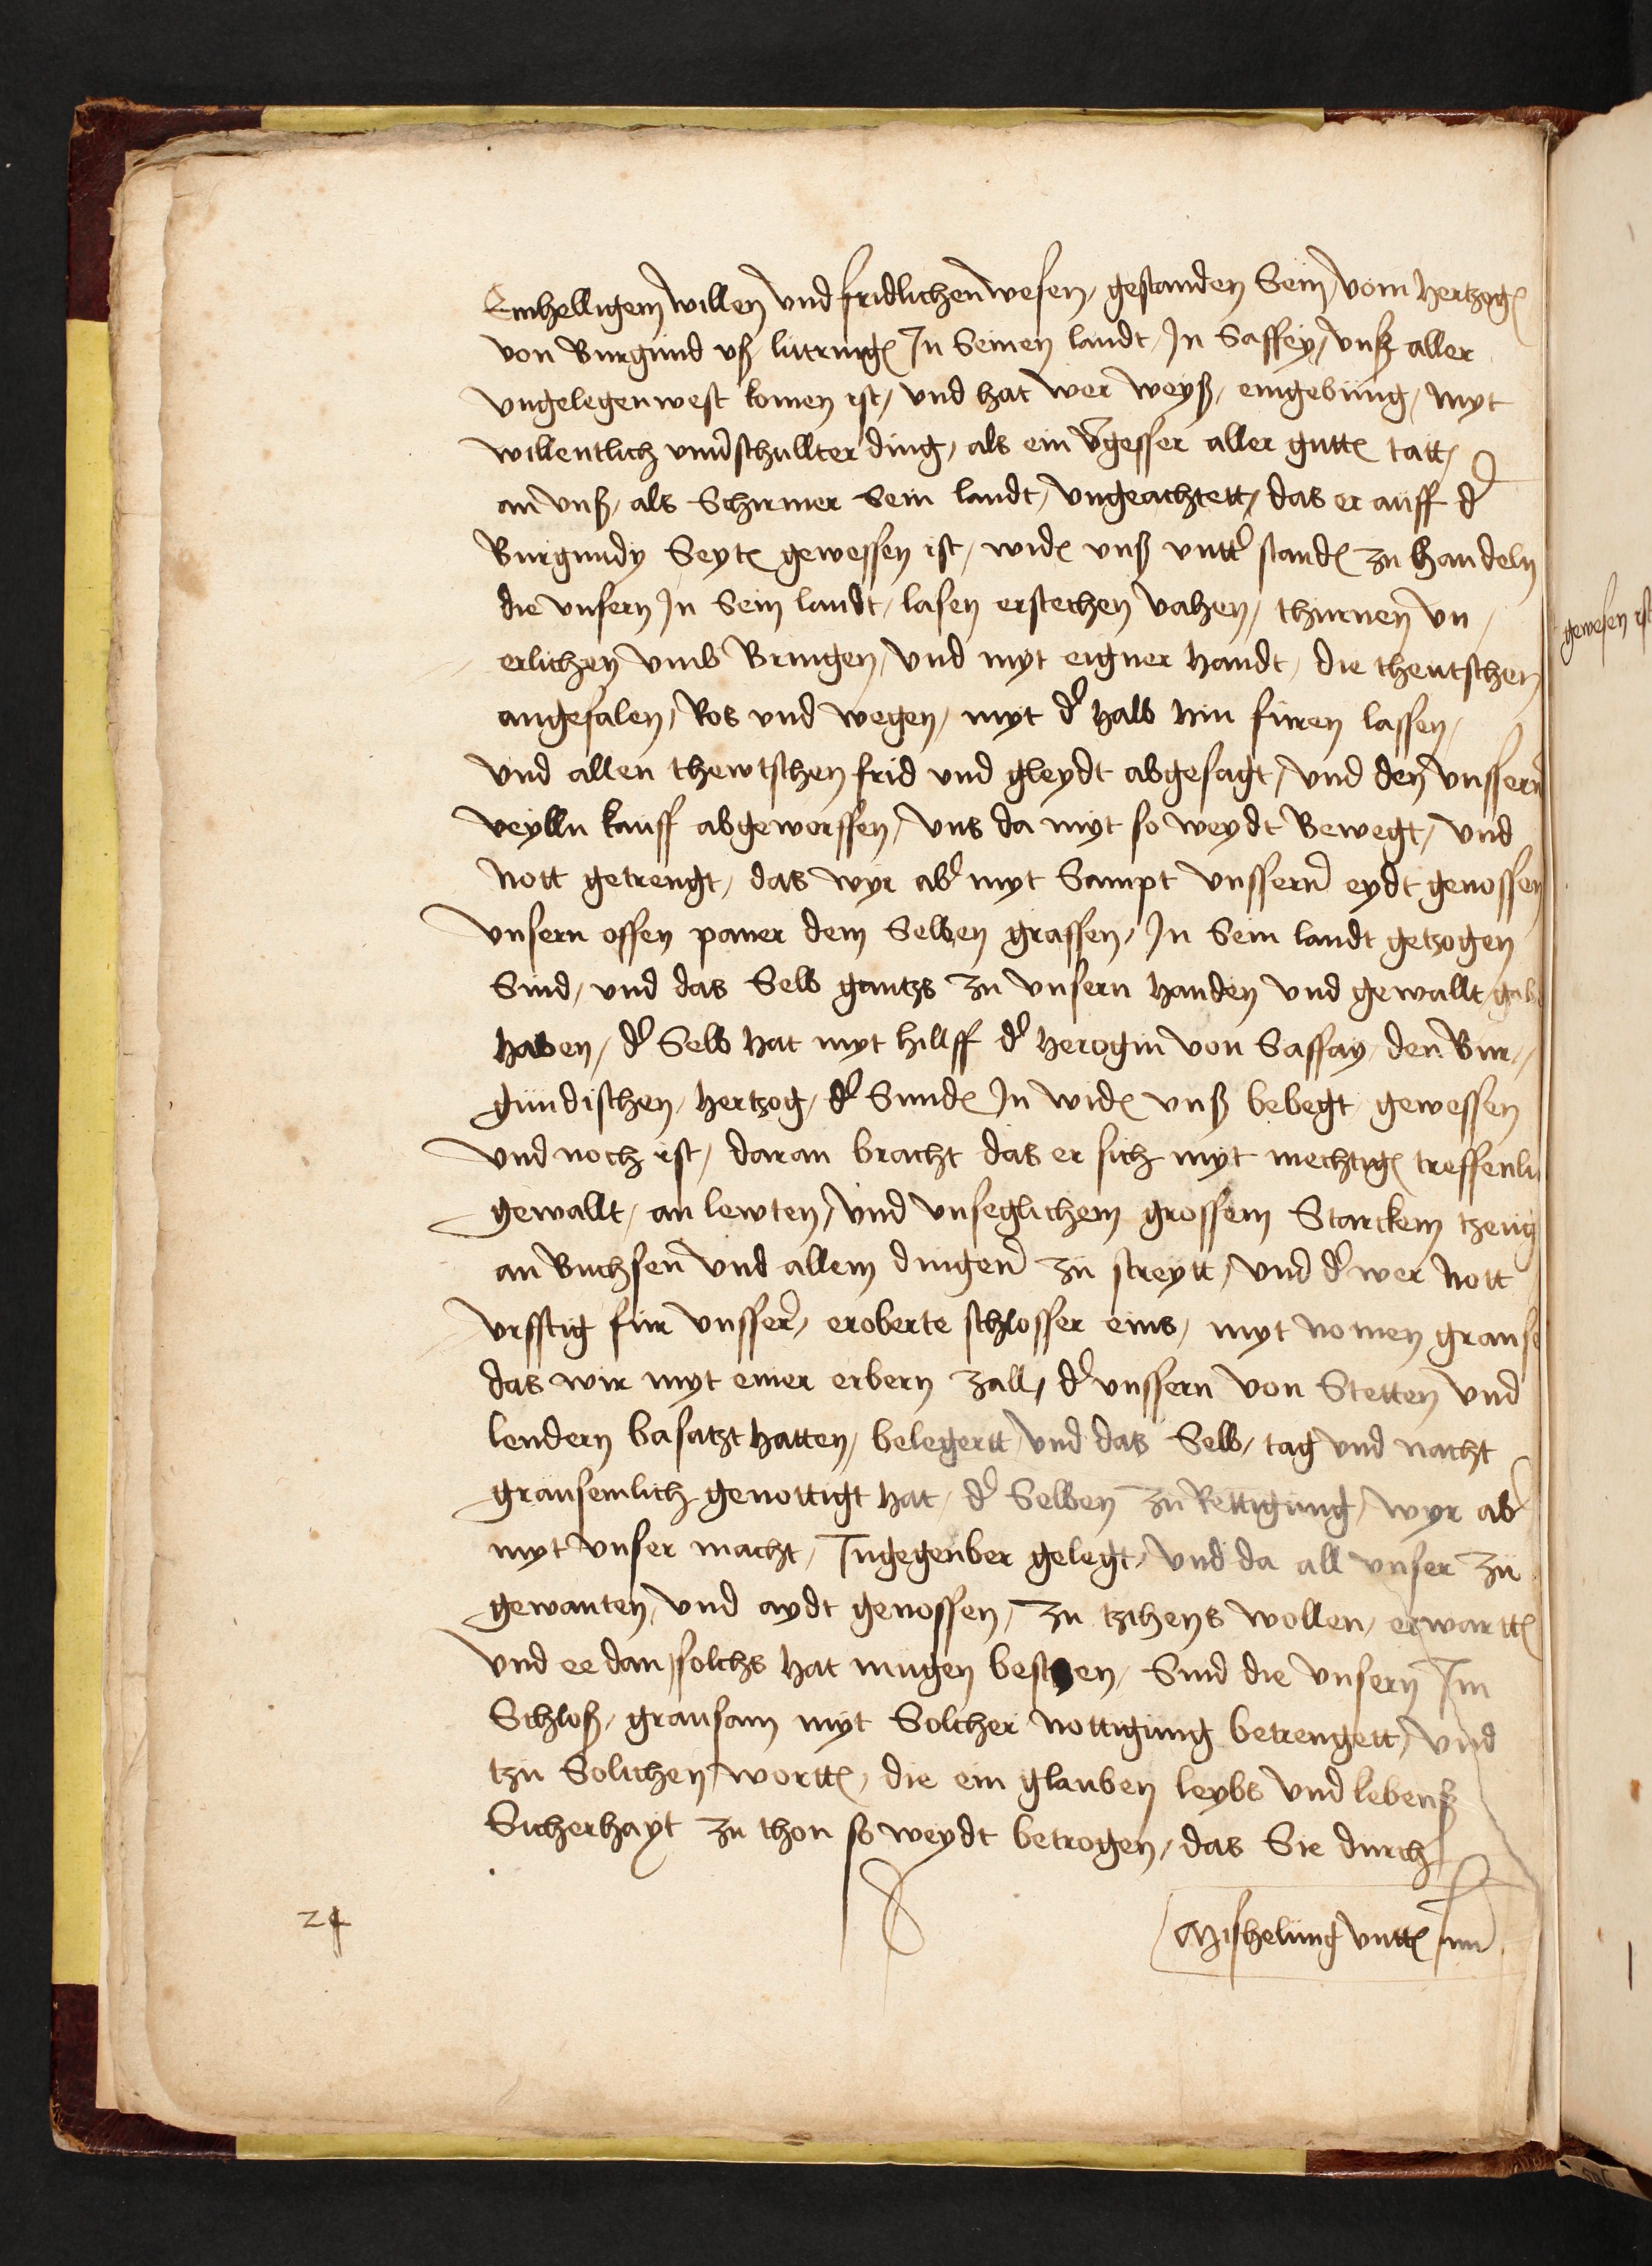 Einhelligem willen vnd fridlichen wesen / gestanden Sein / vom hertzog
von Burgund vß lutring In Seinen landt / In Saffey / vnß aller
vngelegenwest komen ist / vnd hat wer weyß / eingebung / myt
willentlich vnuerschullter ding / als ein vgesser aller gutte tatt /
an vnß / als Schirmer Sein landt / vngeachtett / das er auff d
Burgundy Seyte gewessen ist / wide vnß vntt stande zu handeln
die vnsern In Sein landt / lasen erstechen vahen / thurnen vn
erlichen vmb Bringen / vnd myt eigner handt / die theutschen
angefalen / Ros vnd wegen / myt d halb hin furen lassen /
vnd allen thewtschen frid vnd gleydt abgesagt / vnd den vnssern
veylln kauff abgeworffen / vns da myt so weydt Bewegt / vnd
Nott getrengt / das wyr ab myt Sampt vnssern eydt genossen
vnsern offen paner dem Selben graffen / In Sein landt getzogen
Sind / vnd das Selb gantzs zu vnsern handen vnd gewallt
haben / d Selb hat myt hillff d herogin von Saffay / den Bur /
gundischen / hertzog / d Sunde In wide vnß bebegt gewessen
vnd noch ist / daran bracht das er sich myt mechtige treffenli
gewallt / an lewten / vnd vnseglichem grossem Starckem tzeug
an Buchsen vnd allem dingen zu streytt / vnd d wer Nott
vrfftig fur vnsser / eroberte schlosser eins / myt nomen granse
das wir myt einer erbern zall / d vnssern von Stetten vnd
lendern basatzt hatten / belegertt / vnd das Selb / tag vnd nacht
grausemlich genottigt hat / d Selben zu Rettigung / wyr ab
myt vnser macht / Ingegenber gelegt / vnd da all vnser zu
gewanten / vnd aydt genossen / zu tzichens wollen / erwartte
vnd ee dan solchs hat mugen Sind die vnsern Im
Schloß / grausam myt Solcher nottigung betrengett / vnd
tzu Solichen wortte / die ein glauben leybs vnd lebenß
Sicherhayt zu thon so weydt betrogen / das Sie durch
Mishelung vntte im
24
gewesen ist